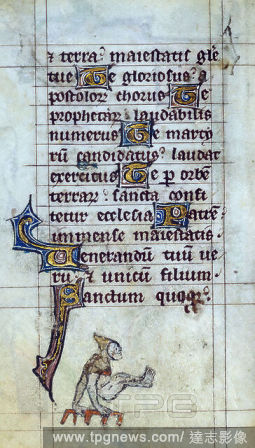 ⁊ terra. maiestatis glē
tue Te gloriosus. a
postolor. chorus Te
prophetar. laudabilis
numerus Te marty
rū candidatus. laudat
exercitus Te p orbē
terrar. sancta confi
tetur ecclesia Patrem
immense maiestatis
Uenerandū tuū ue
rū ⁊ unicū filium
Sanctum quoq.
TPG
www.tpgnews.com/ 達志影像